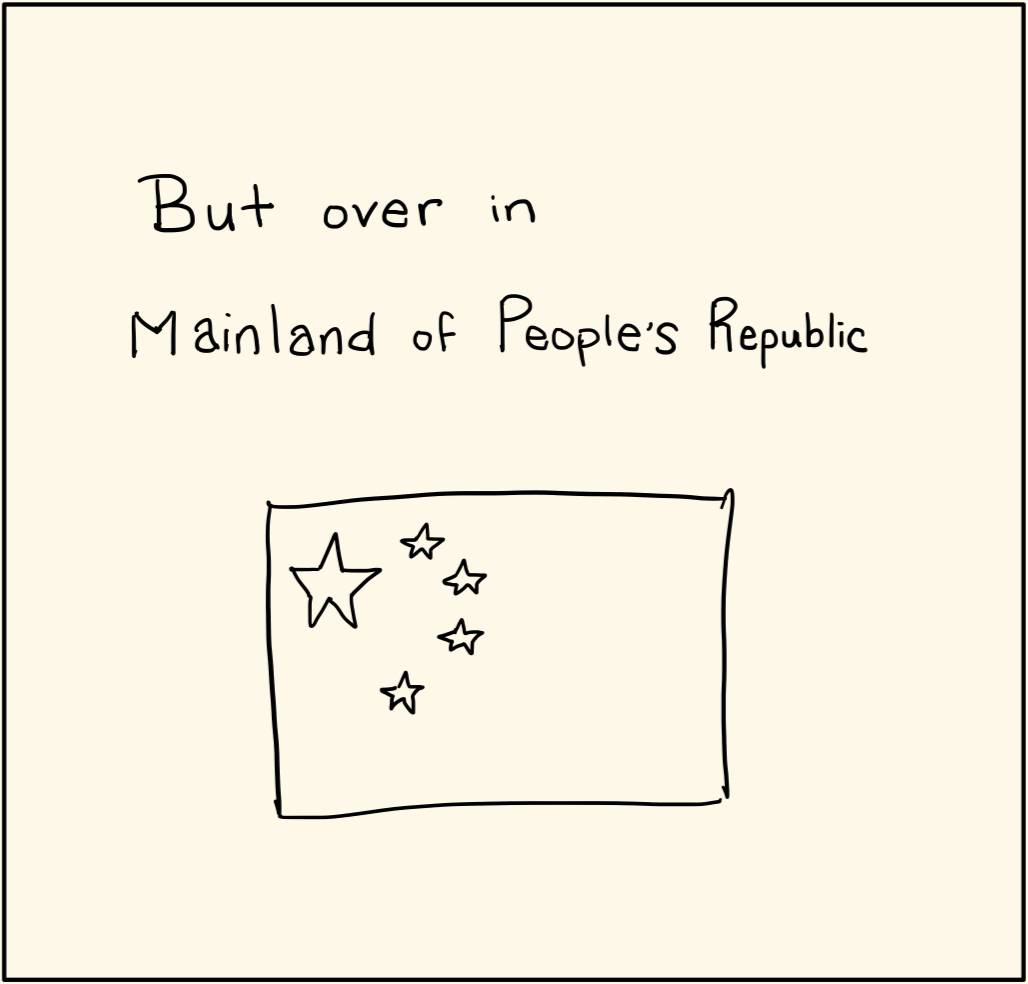 But over in
Mainland of People's Republic